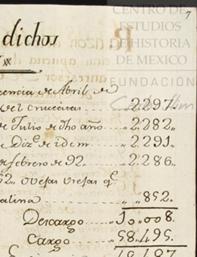 CENTRO DE
ESTUDIOS
DE HISTORIA
DE MÉXICO
FUNDACIÓN
7
dichos
de Abril de
2297.
de Julio de dho año 2282.
de Diz.e de idem 2291.
de febrero de 92. 2286.
ovejas viejas q.e
852.
Descargo 10.008.
Cargo 58.495.